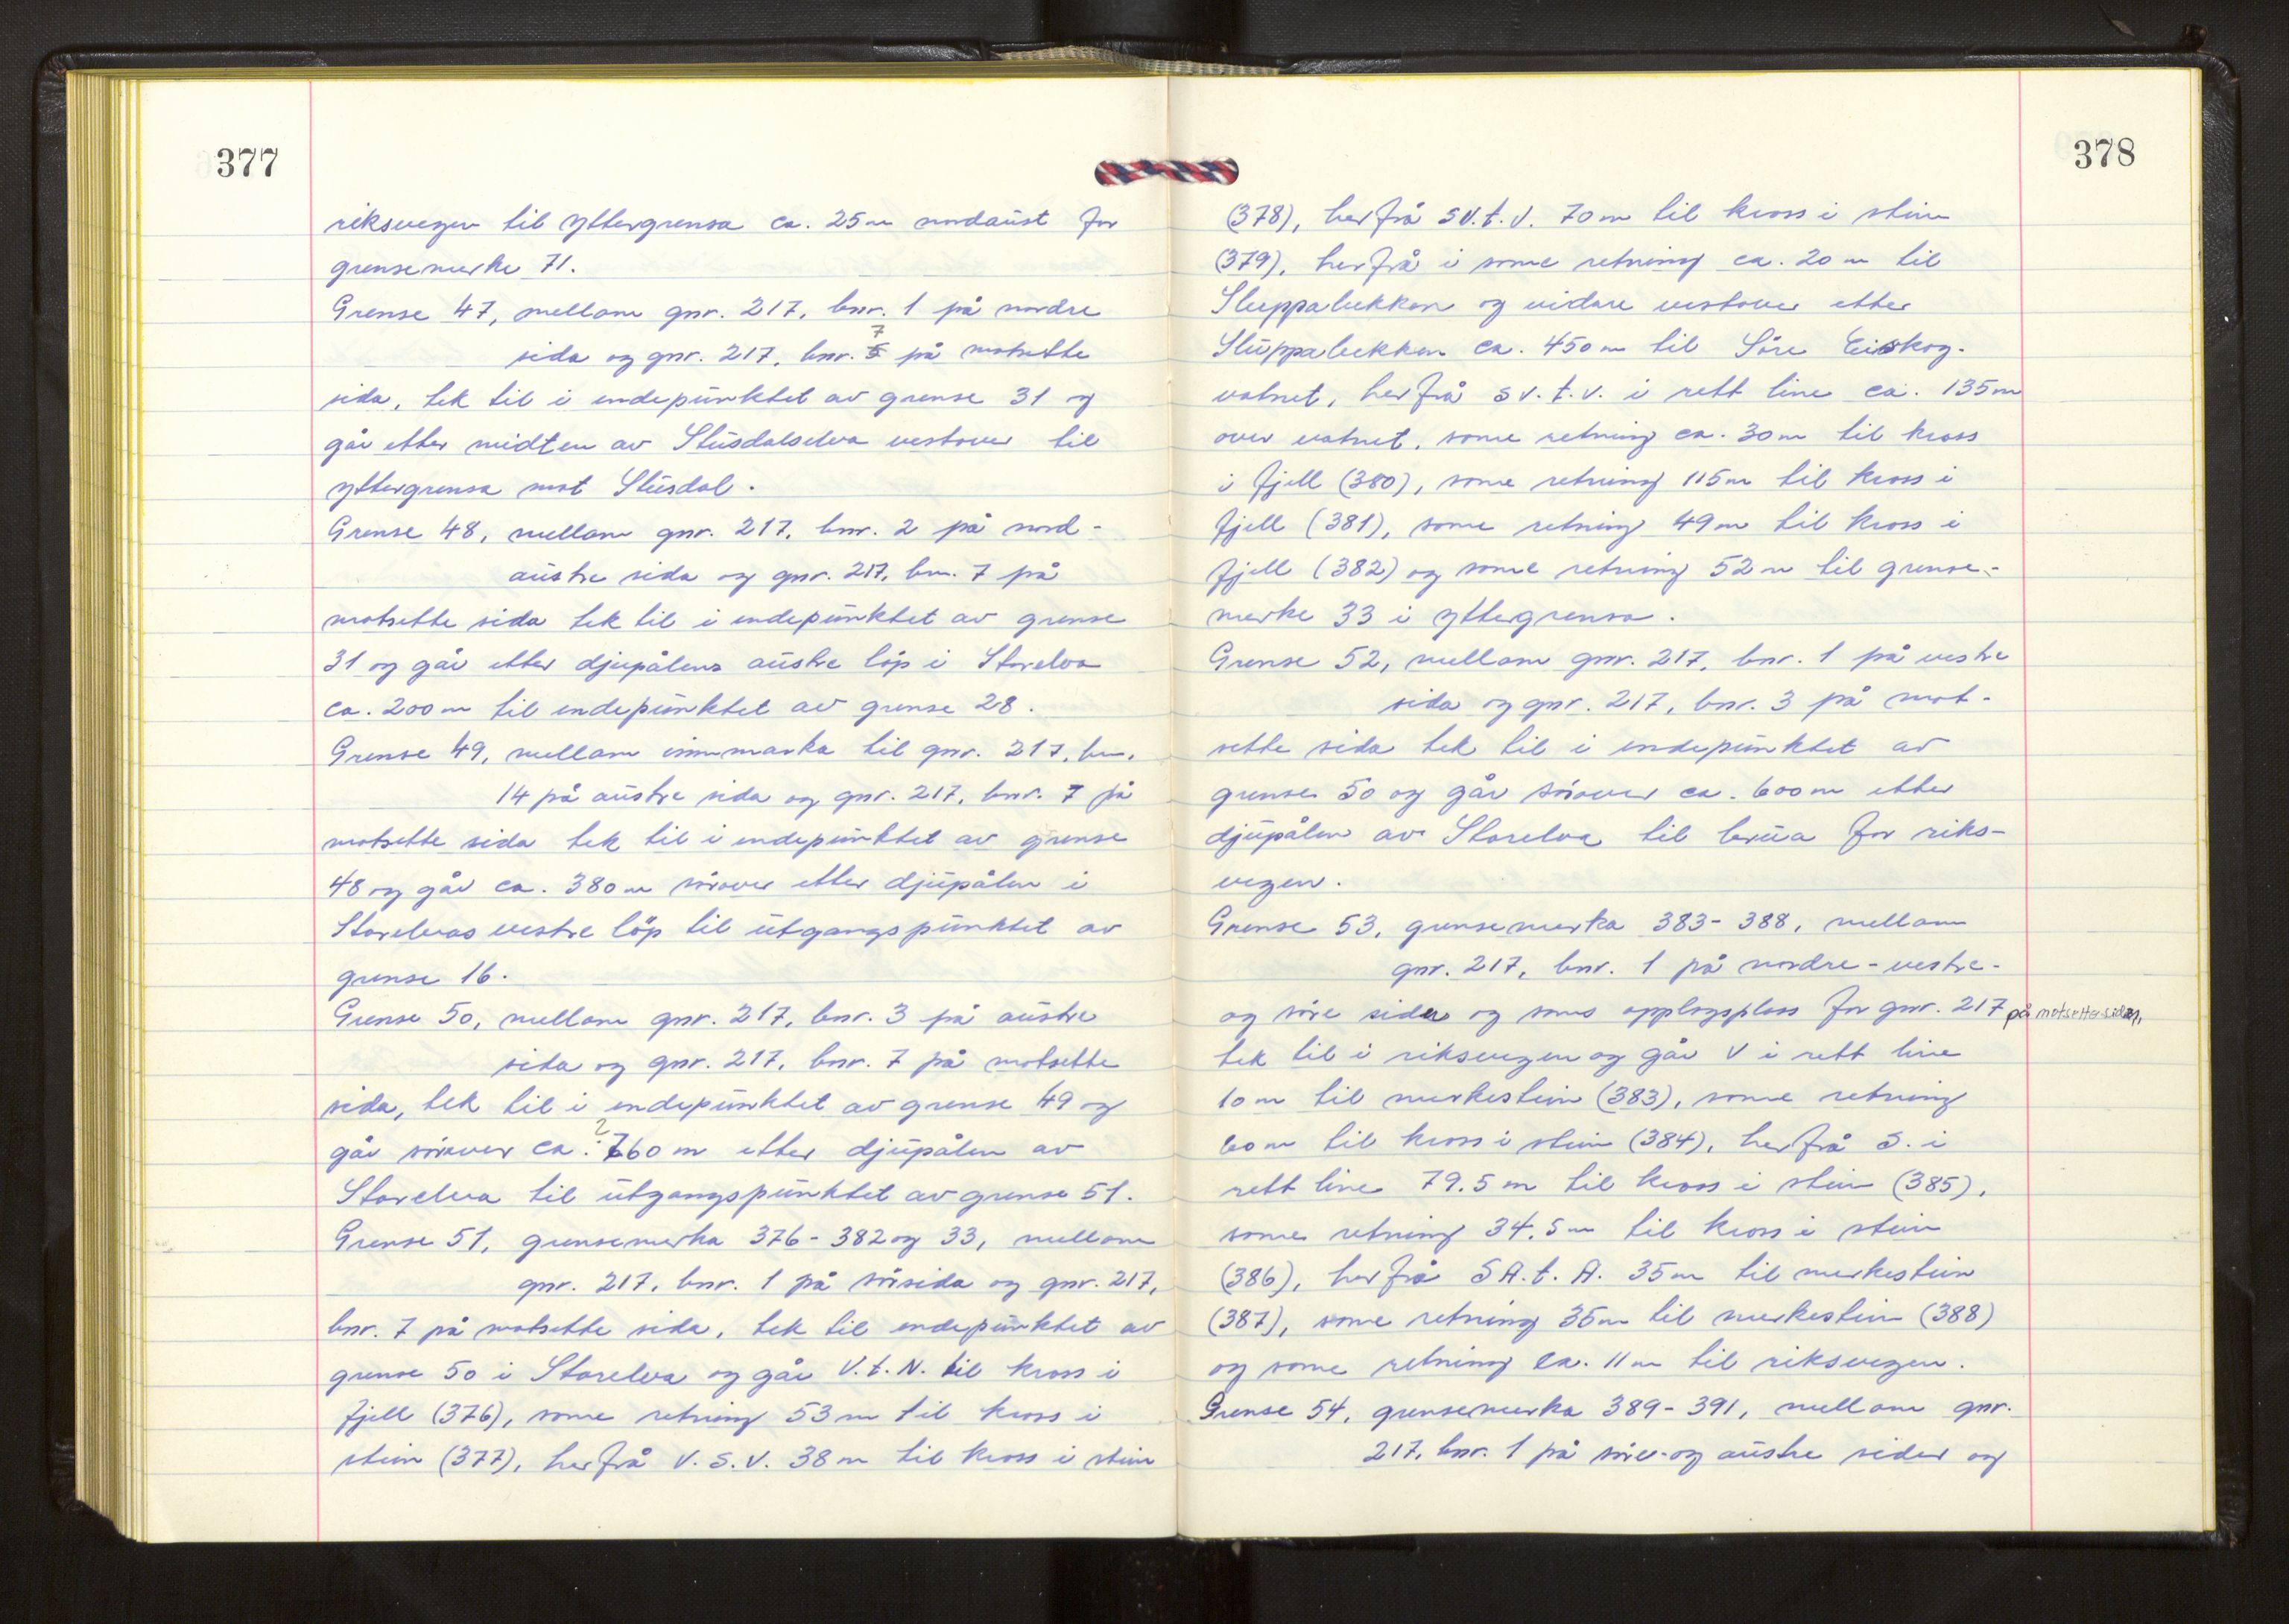 377
riksvegen til yttergrensa ca. 25 m nordaust for
grensemerke 71.
Grense 47, mellom gnr. 217, bnr. 1 på nordre
7
sida og gnr. 217, bnr. 5 på motsette
sida, tek til i endepunktet av grense 31 og
går etter midten av Stusdalselva vestover til
yttergrensa mot Stusdal.
Grense 48, mellom gnr. 217, bnr. 2 på nord-
austre sida og gnr. 217, bnr. 7 på
motsette sida tek til i endepunktet av grense
31 og går etter djupålens austre löp i Storelva
ca. 200 m til endepunktet av grense 28.
Grense 49, mellom innmarka til gnr. 217, bnr.
14 på austre sida og gnr. 217, bnr. 7 på
motsette sida tek til i endepunktet av grense
48 og går ca. 380 m sörover etter djupålen i
Storelvas vestre löp til utgangspunktet av
grense 16.
Grense 50, mellom gnr. 217, bnr. 3 på austre
sida og gnr. 217, bnr. 7 på motsette
sida, tek til i endepunktet av grense 49 og
2
går sörover ca. 760 m etter djupålen av
Storelva til utgangspunktet av grense 51.
Grense 51, grensemerka 376-382 og 33, mellom
gnr. 217, bnr. 1 på sörsida og gnr. 217,
bnr. 7 på motsette sida, tek til endepunktet av
grense 50 i Storelva og går V.t.N. til kross i
fjell (376), same retning 53 m til kross i
stein (377), herfrå V.S.V. 38 m til kross i stein
378
(378), herfrå SV.t.V. 70 m til kross i stein
(379), herfrå i same retning ca. 20 m til
Sluppabekken og vidare vestover etter
Sluppabekken ca. 450 m til Söre Eiskog-
vatnet, herfrå SV.t.V. i rett line ca. 135 m
over vatnet, same retning ca. 30 m til kross
i fjell (380), same retning 115 m til kross i
fjell (381), same retning 49 m til kross i
fjell (382) og same retning 52 m til grense-
merke 33 i yttergrensa.
Grense 52, mellom gnr. 217, bnr. 1 på vestre
sida og gnr. 217, bnr. 3 på mot-
sette sida tek til i endepunktet av
grense 50 og går sörover ca. 600 m etter
djupålen av Storelva til brua for riks-
vegen.
Grense 53, grensemerka 383-388, mellom
gnr. 217, bnr. 1 på nordre-vestre-
og söre sider og sams opplagsplass for gnr. 217 på motsette sider,
tek til i riksvegen og går V i rett line
10 m til merkestein (383), same retning
60 m til kross i stein (384), herfrå S. i
rett line 79.5 m til kross i stein (385),
same retning 34.5 m til kross i stein
(386), herfrå SA.t.A. 35 m til merkestein
(387), same retning 35 m til merkestein (388)
og same retning ca. 11 m til riksvegen.
Grense 54, grensemerka 389-391, mellom gnr.
217, bnr. 1 på söre-og austre sider og